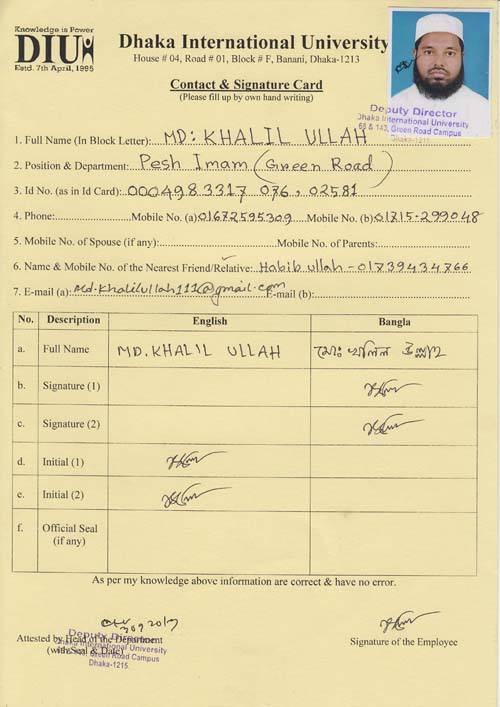 Knowledge is Power
DIU
Estd. 7th April, 1995
Dhaka International University
House # 04, Road # 01, Block # F, Banani, Dhaka-1213
Contact & Signature Card
(Please fill up by own hand writing)
Deputy Director
Dhaka International University
66 & 143, Green Road Campus
Dhaka-1215
1. Full Name (In Block Letter): MD: KHALIL ULLAH
2. Position & Department: Pesh Imam (Green Road)
3. Id No. (as in Id Card): 0004983317 076, 02581
4. Phone: Mobile No. (a) 01672595309 Mobile No. (b) 01715-299048
5. Mobile No. of Spouse (if any): Mobile No. of Parents:
6. Name & Mobile No. of the Nearest Friend/Relative: Habib ullah - 01739434766
7. E-mail (a): Md.Khalilullah111@gmail.com E-mail (b):
No. Description English Bangla
a. Full Name MD. KHALIL ULLAH মোঃ খলিল উল্লাহ
b. Signature (1)
c. Signature (2)
d. Initial (1)
e. Initial (2)
f. Official Seal
(if any)
As per my knowledge above information are correct & have no error.
Attested by Head of the Department
(with Seal & Date)
Deputy Director
Dhaka International University
Green Road Campus
Dhaka-1215.
Signature of the Employee